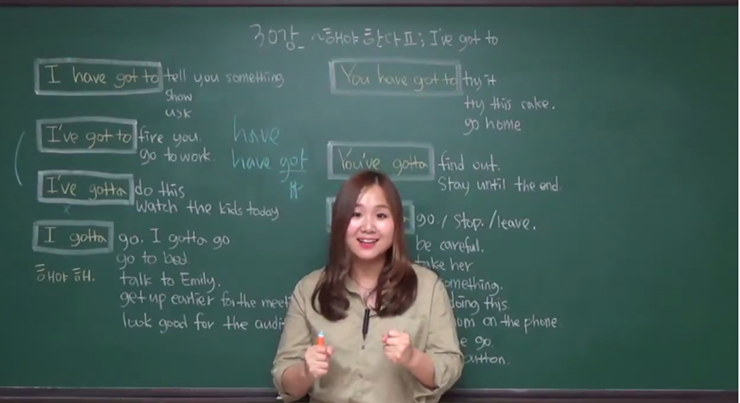 30강_ ~해야 한다 II; I've got to
I have got to tell you something
show
ask
I've got to fire you.
go to work.
I've gotta do this
Watch the kids today
I gotta go. I gotta go
go to bed.
해야 해. talk to Emily.
get up earlier for the
look good for the
have
have got
You have got to try it
try this cake.
go home
You've gotta find out.
Stay until the end.
go. / Stop. /leave.
be careful.
take her
this.
on the phone.
go.